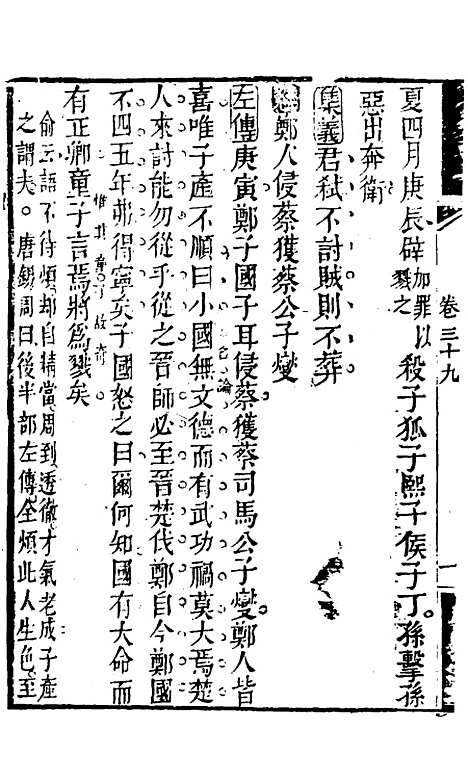 卷三十九
夏四月庚辰辟加罪以戮之殺子狐子熙子侯子丁孫擊孫
惡出奔衛
集義君弑不討賊則不葬
經鄭人侵蔡獲蔡公子燮
左傳庚寅鄭子國子耳侵蔡獲蔡司馬公子燮鄭人皆
喜唯子產不順曰小國無文德而有武功禍莫大焉楚
名論
人來討能勿從乎從之晉師必至晉楚伐鄭自今鄭國
不四五年弗得寧矣子國怒之曰爾何知國有大命而
有正卿童子言焉將爲戮矣
惟其童子故奇
俞云語不待煩却自精當周到透徹才氣老成子產
之謂夫。唐錫周曰後半部左傳全煩此人生色至